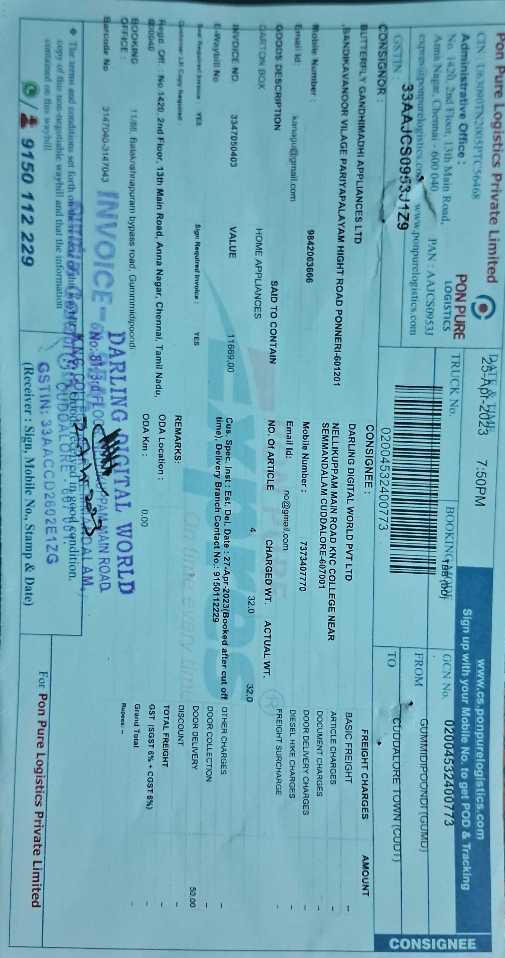 Pon Pure Logistics Private Limited
CIN : U63090TN2005PTC56468
Administrative Office :
No. 1420, 2nd Floor, 13th Main Road,
Anna Nagar, Chennai - 600 040
express@ponpurelogistics.com www.ponpurelogistics.com
PAN : AAJCS0953J
GSTIN : 33AAJCS0953J1Z9
PON PURE
LOGISTICS
DATE & TIME
25-Apr-2023 7:50PM
TRUCK No.
BOOKING MODE
02004532400773
www.cs.ponpurelogistics.com
Sign up with your Mobile No. to get POD & Tracking
GCN No. 02004532400773
FROM GUMMIDIPOONDI (GUMD)
TO CUDDALORE TOWN (CUDT)
CONSIGNEE
CONSIGNOR :
BUTTERFLY GANDHIMADHI APPLIANCES LTD
,BANDIKAVANOOR VILAGE PARIYAPALAYAM HIGHT ROAD PONNERI-601201
Mobile Number : 9842063666
Email Id: kanagu@gmail.com
CONSIGNEE :
DARLING DIGITAL WORLD PVT LTD
NELLIKUPPAM MAIN ROAD KNC COLLEGE NEAR
SEMMANDALAM CUDDALORE-607001
Mobile Number : 7373407770
Email Id: no@gmail.com
GOODS DESCRIPTION SAID TO CONTAIN NO. Of ARTICLE CHARGED WT. ACTUAL WT.
CARTON BOX HOME APPLIANCES 4 32.0 32.0
INVOICE NO. 3347050403 VALUE 11669.00
E-Waybill No
Cus. Spec. Inst : Est. Del. Date : 27-Apr-2023(Booked after cut off
time), Delivery Branch Contact No.: 9150112229
Seal Required Invoice : YES Sign Required Invoice : YES
Customer LR Copy Required
REMARKS:
Regd. Off : No 1420, 2nd Floor, 13th Main Road, Anna Nagar, Chennai, Tamil Nadu,
600040
ODA Location :
BOOKING
OFFICE :
11/88, Balakrishnapuram bypass road, Gummmidipoondi
ODA Km : 0.00
Barcode No 3147040-3147043
FREIGHT CHARGES AMOUNT
BASIC FREIGHT --
ARTICLE CHARGES -
DOCUMENT CHARGES -
DOOR DELIVERY CHARGES -
DIESEL HIKE CHARGES -
FREIGHT SURCHARGE -
OTHER CHARGES -
DOOR COLLECTION -
DOOR DELIVERY 50.00
DISCOUNT -
TOTAL FREIGHT -
GST (SGST 6% + CGST 6%) -
Grand Total -
Rupees: --
INVOICE
DARLING DIGITAL WORLD
MAIN ROAD
CUDDALORE
GSTIN: 33AACCD2602E1ZG
The terms and conditions set forth on the
copy of this non-negotiable waybill and that the information
contained on the waybill
received in good condition.
9150 112 229
(Receiver : Sign, Mobile No., Stamp & Date)
For Pon Pure Logistics Private Limited